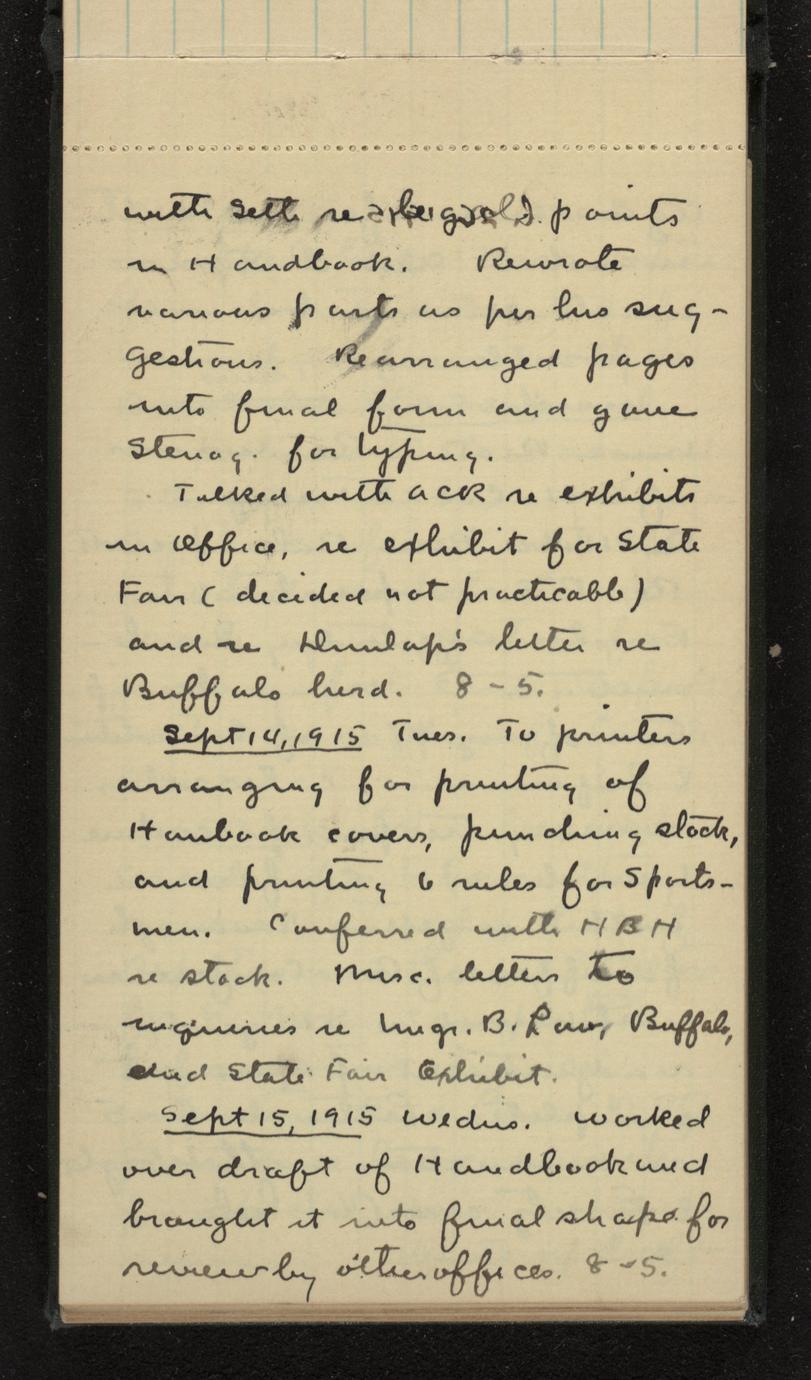 with Sett re legal points
in Handbook. Rewrote
various parts as per his sug-
gestions. Rearranged pages
into final form and gave
Stenog. for typing.
Talked with ACR re exhibits
in Office, re exhibit for State
Fair (decided not practicable)
and re Dunlap's letter re
Buffalo herd. 8-5.
Sept 14, 1915 Tues. To printers
arranging for printing of
Hanbook covers, punching stock,
and printing 6 rules for Sports-
men. Conferred with HBH
re stock. Misc. letters to
inquiries re Migr. B. Law, Buffalo,
and State Fair Exhibit.
Sept 15, 1915 Wedns. Worked
over draft of Handbook and
brought it into final shape for
review by other offices. 8-5.